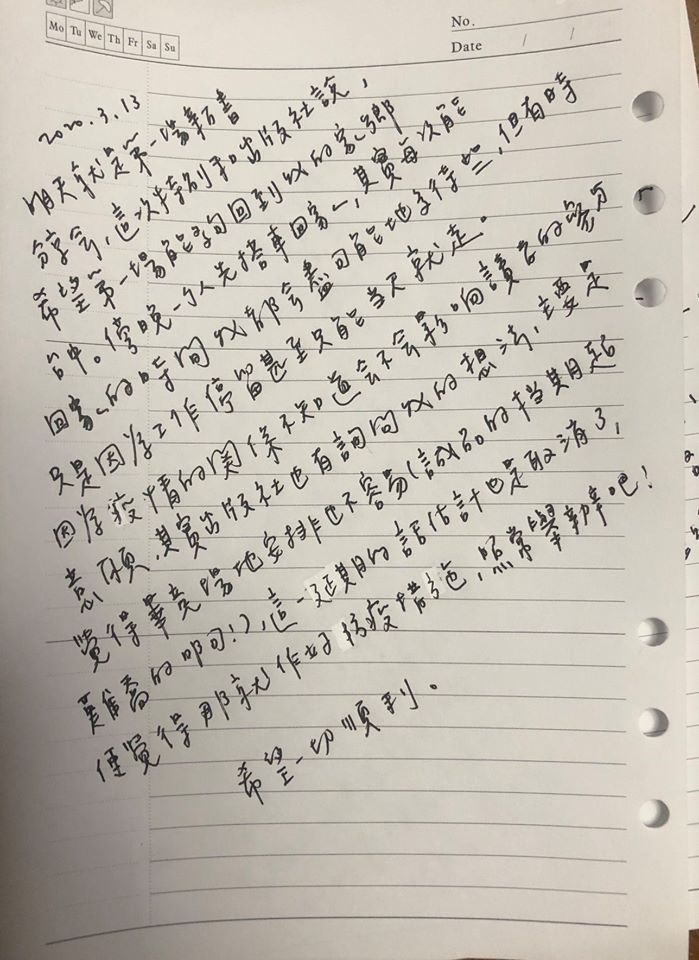 Mo Tu We Th Fr Sa Su
No.
Date / /
2020.3.13
明天就是第一場新書
分享會,這次特別和出版社說,
希望第一場能夠回到我的家鄉
台中。傍晚一個人先搭車回家~,其實每次能
回家~的時間我都會盡可能地多待些,但有時
只是因為工作停留甚至只能當天就走。
因為疫情的關係不知道會不會影响讀者的參与
意願,其實出版社也有詢問我的想法,主要是
覺得畢竟場地安排也不容易(誠品的档期超
難喬的呵呵!),這一延期的話估計也是取消了,
便覺得那就作好防疫措施,照常舉辦吧!
希望一切順利。